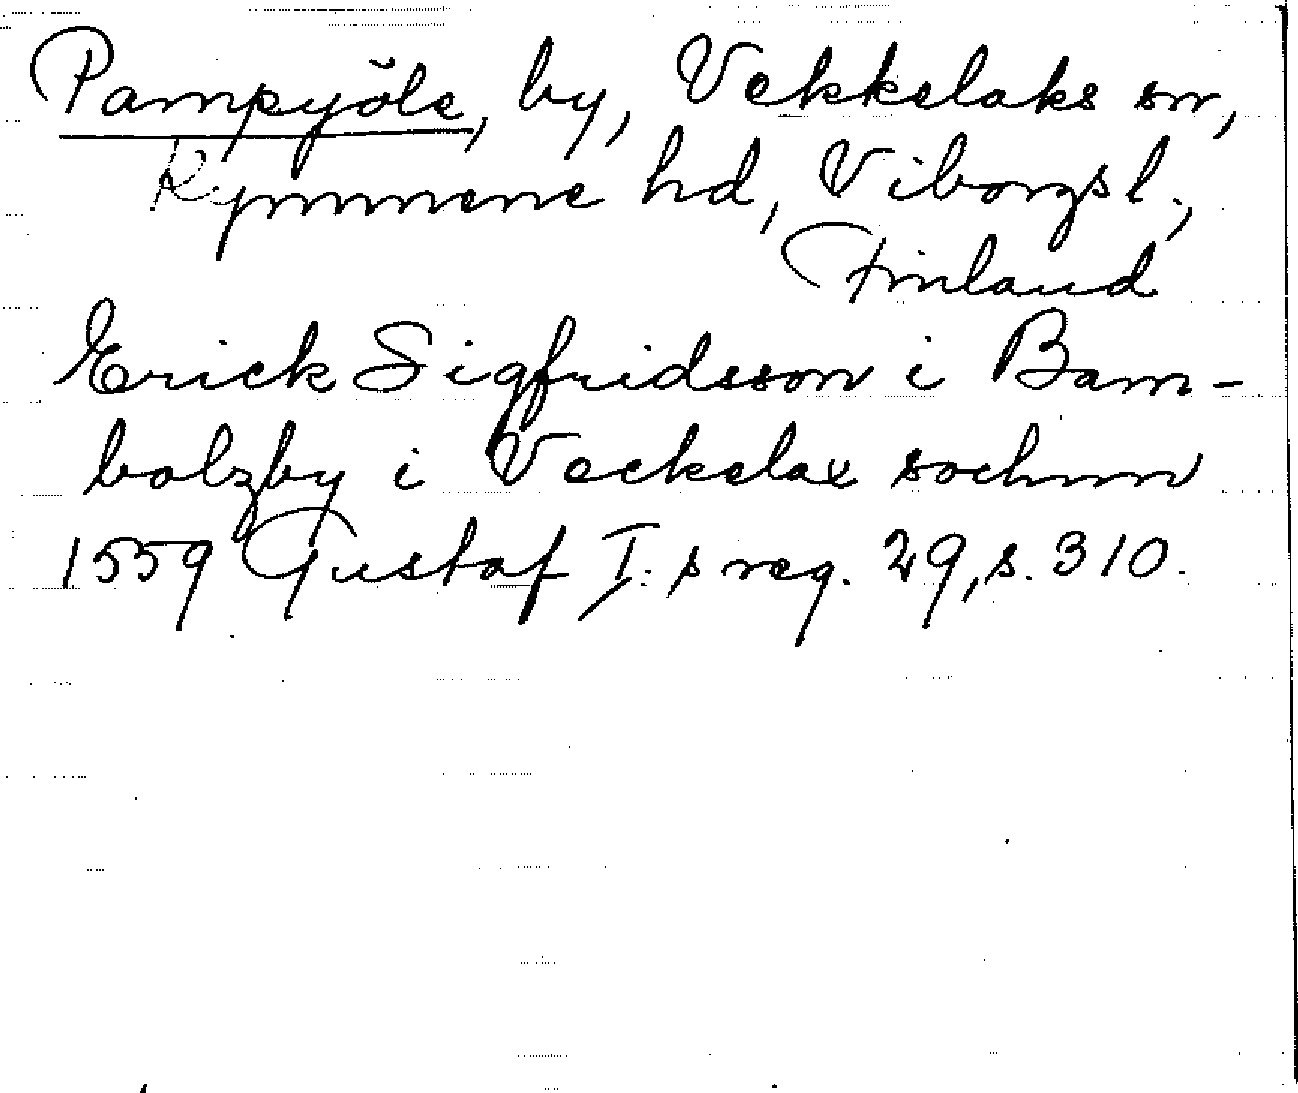 Pampyöle, by, Vekkelaks sn,
Kymmene hd, Viborgs l.,
Finland
Erick Sigfridsson i Bam-
bolzby i Veckelax sochnn
1559 Gustaf I:s reg. 29, s. 310.